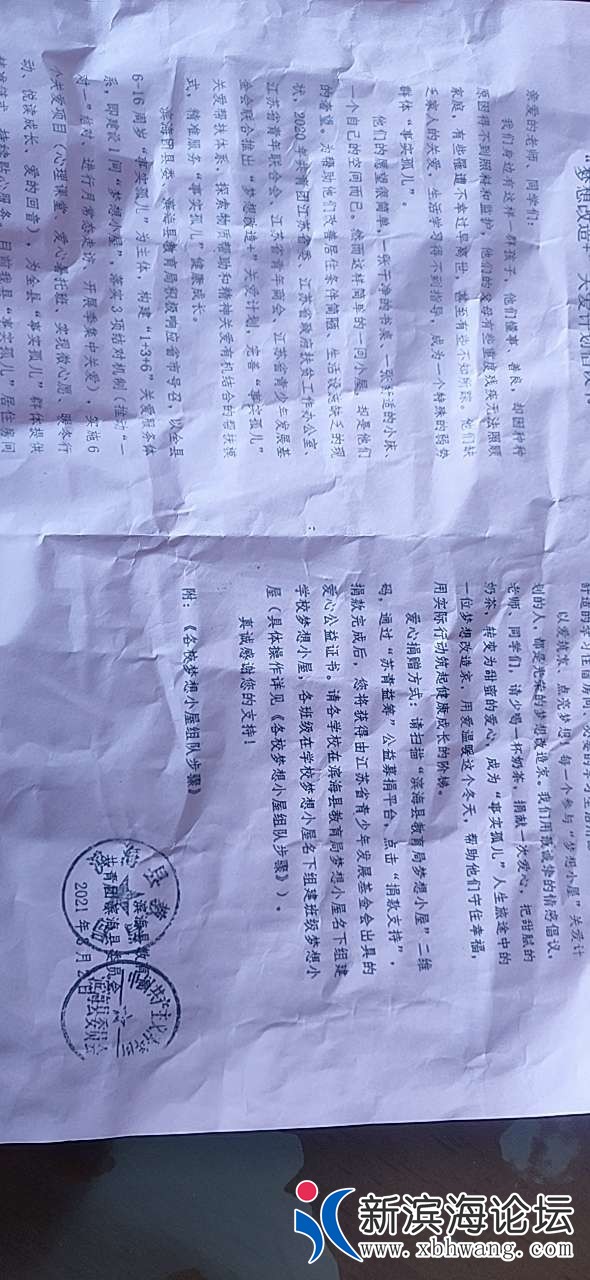 “梦想改造+”关爱计划倡议书
亲爱的老师、同学们：
我们身边有这样一群孩子，他们懂事、善良，却因种种
原因得不到照料和监护。他们的父母有些重度残疾无法照顾
家庭，有些罹遭不幸过早离世，甚至有些不知所踪。他们缺
乏家人的关爱，生活学习得不到指导，成为一个特殊的弱势
群体“事实孤儿”。
他们的愿望很简单，一张干净的书桌，一张舒适的小床、
一个自己的空间而已。然而这样简单的一间小屋，却是他们
的奢望。为帮助他们改善居住条件简陋、生活设施缺乏的现
状，2020年共青团江苏省委、江苏省政府扶贫工作办公室、
江苏省青年联合会、江苏省青年商会、江苏省青少年发展基
金会联合推出“梦想改造+”关爱计划，完善“事实孤儿”
关爱帮扶体系，探索物质帮助和精神关爱有机结合的帮扶模
式，精准服务“事实孤儿”健康成长。
滨海团县委、滨海县教育局积极响应省市号召，以全县
6-16周岁“事实孤儿”为主体，构建“1+3+6”关爱服务体
系，即建设1间“梦想小屋”，落实3项结对机制（推动“一
对一”结对，进行月常态走访、开展季集中关爱），实施6
个关爱项目（心理课堂、爱心暑托班、实现微心愿、暖冬行
动、悦读成长、爱的回音），为全县“事实孤儿”群体提供
目前我县“事实孤儿”居住房间
舒适的学习住宿房间
以爱筑家，点亮梦想！每一个参与“梦想小屋”关爱计
划的人，都是光荣的梦想改造家。我们用最诚挚的情感倡议，
老师、同学们，请少喝一杯奶茶，捐献一次爱心，把甜腻的
奶茶，转变为甜蜜的爱心，成为“事实孤儿”人生旅途中的
一位梦想改造家，用爱温暖这个冬天，帮助他们守住幸福，
用实际行动筑起健康成长的阶梯。
爱心捐赠方式：请扫描“滨海县教育局梦想小屋”二维
码，通过“苏青益筹”公益募捐平台，点击“捐款支持”，
捐款完成后，您将获得由江苏省青少年发展基金会出具的
爱心公益证书。请各学校在滨海县教育局梦想小屋名下组建
学校梦想小屋，各班级在学校梦想小屋名下组建班级梦想小
屋（具体操作详见《各校梦想小屋组队步骤》）。
真诚感谢您的支持！
附：《各校梦想小屋组队步骤》
滨海县教育局
共青团滨海县委员会
2021年
新滨海论坛
www.xbhwang.com